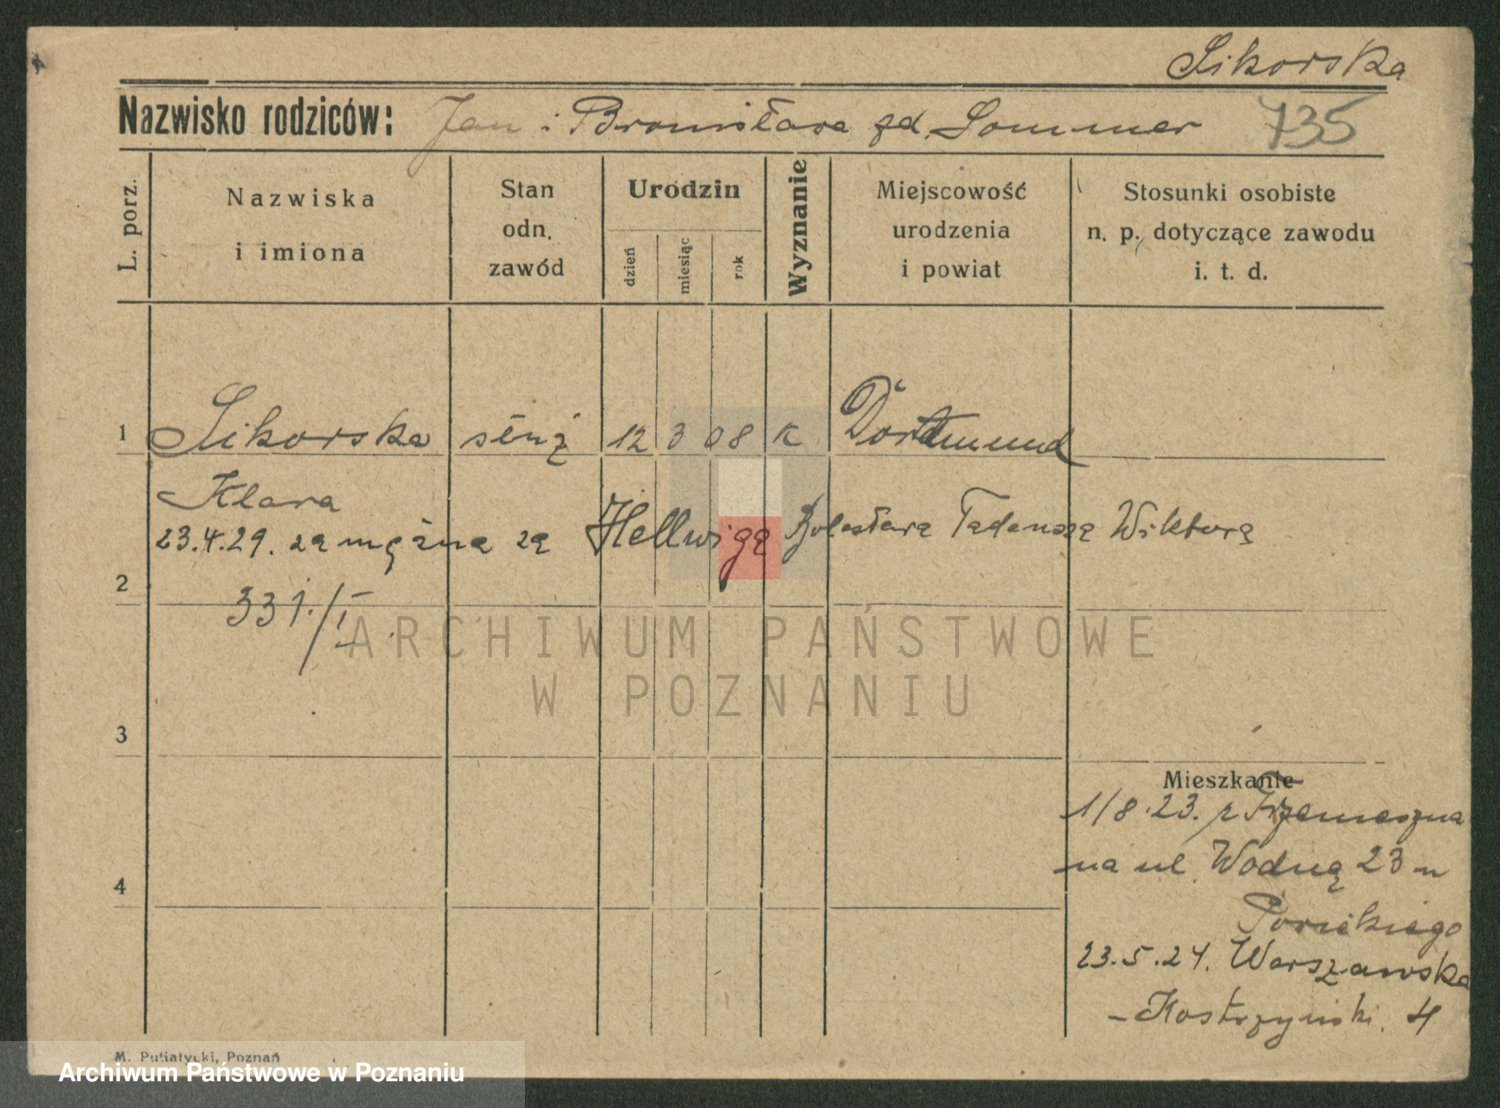 Sikorska
Nazwisko rodziców: Jan i Bronisława zd. Sommer 735
L. porz.
Nazwiska i imiona
Stan odn. zawód
Urodzin
dzień miesiąc rok
Wyznanie
Miejscowość urodzenia i powiat
Stosunki osobiste n. p. dotyczące zawodu i. t. d.
1 Sikorska 12 3 08 K Dortmund
Klara
23.4.29. zamężna za Hellwigą Bolesława Tadeusza Wiktora
2
331./I.
3
Mieszkanie
1/8.23. z Trzemeszna
na ul. Wodną 23 u
4
23.5.24. Warszawska
- Kostrzyński. 4
M. Putiatycki, Poznań
ARCHIWUM PAŃSTWOWE
W POZNANIU
Archiwum Państwowe w Poznaniu